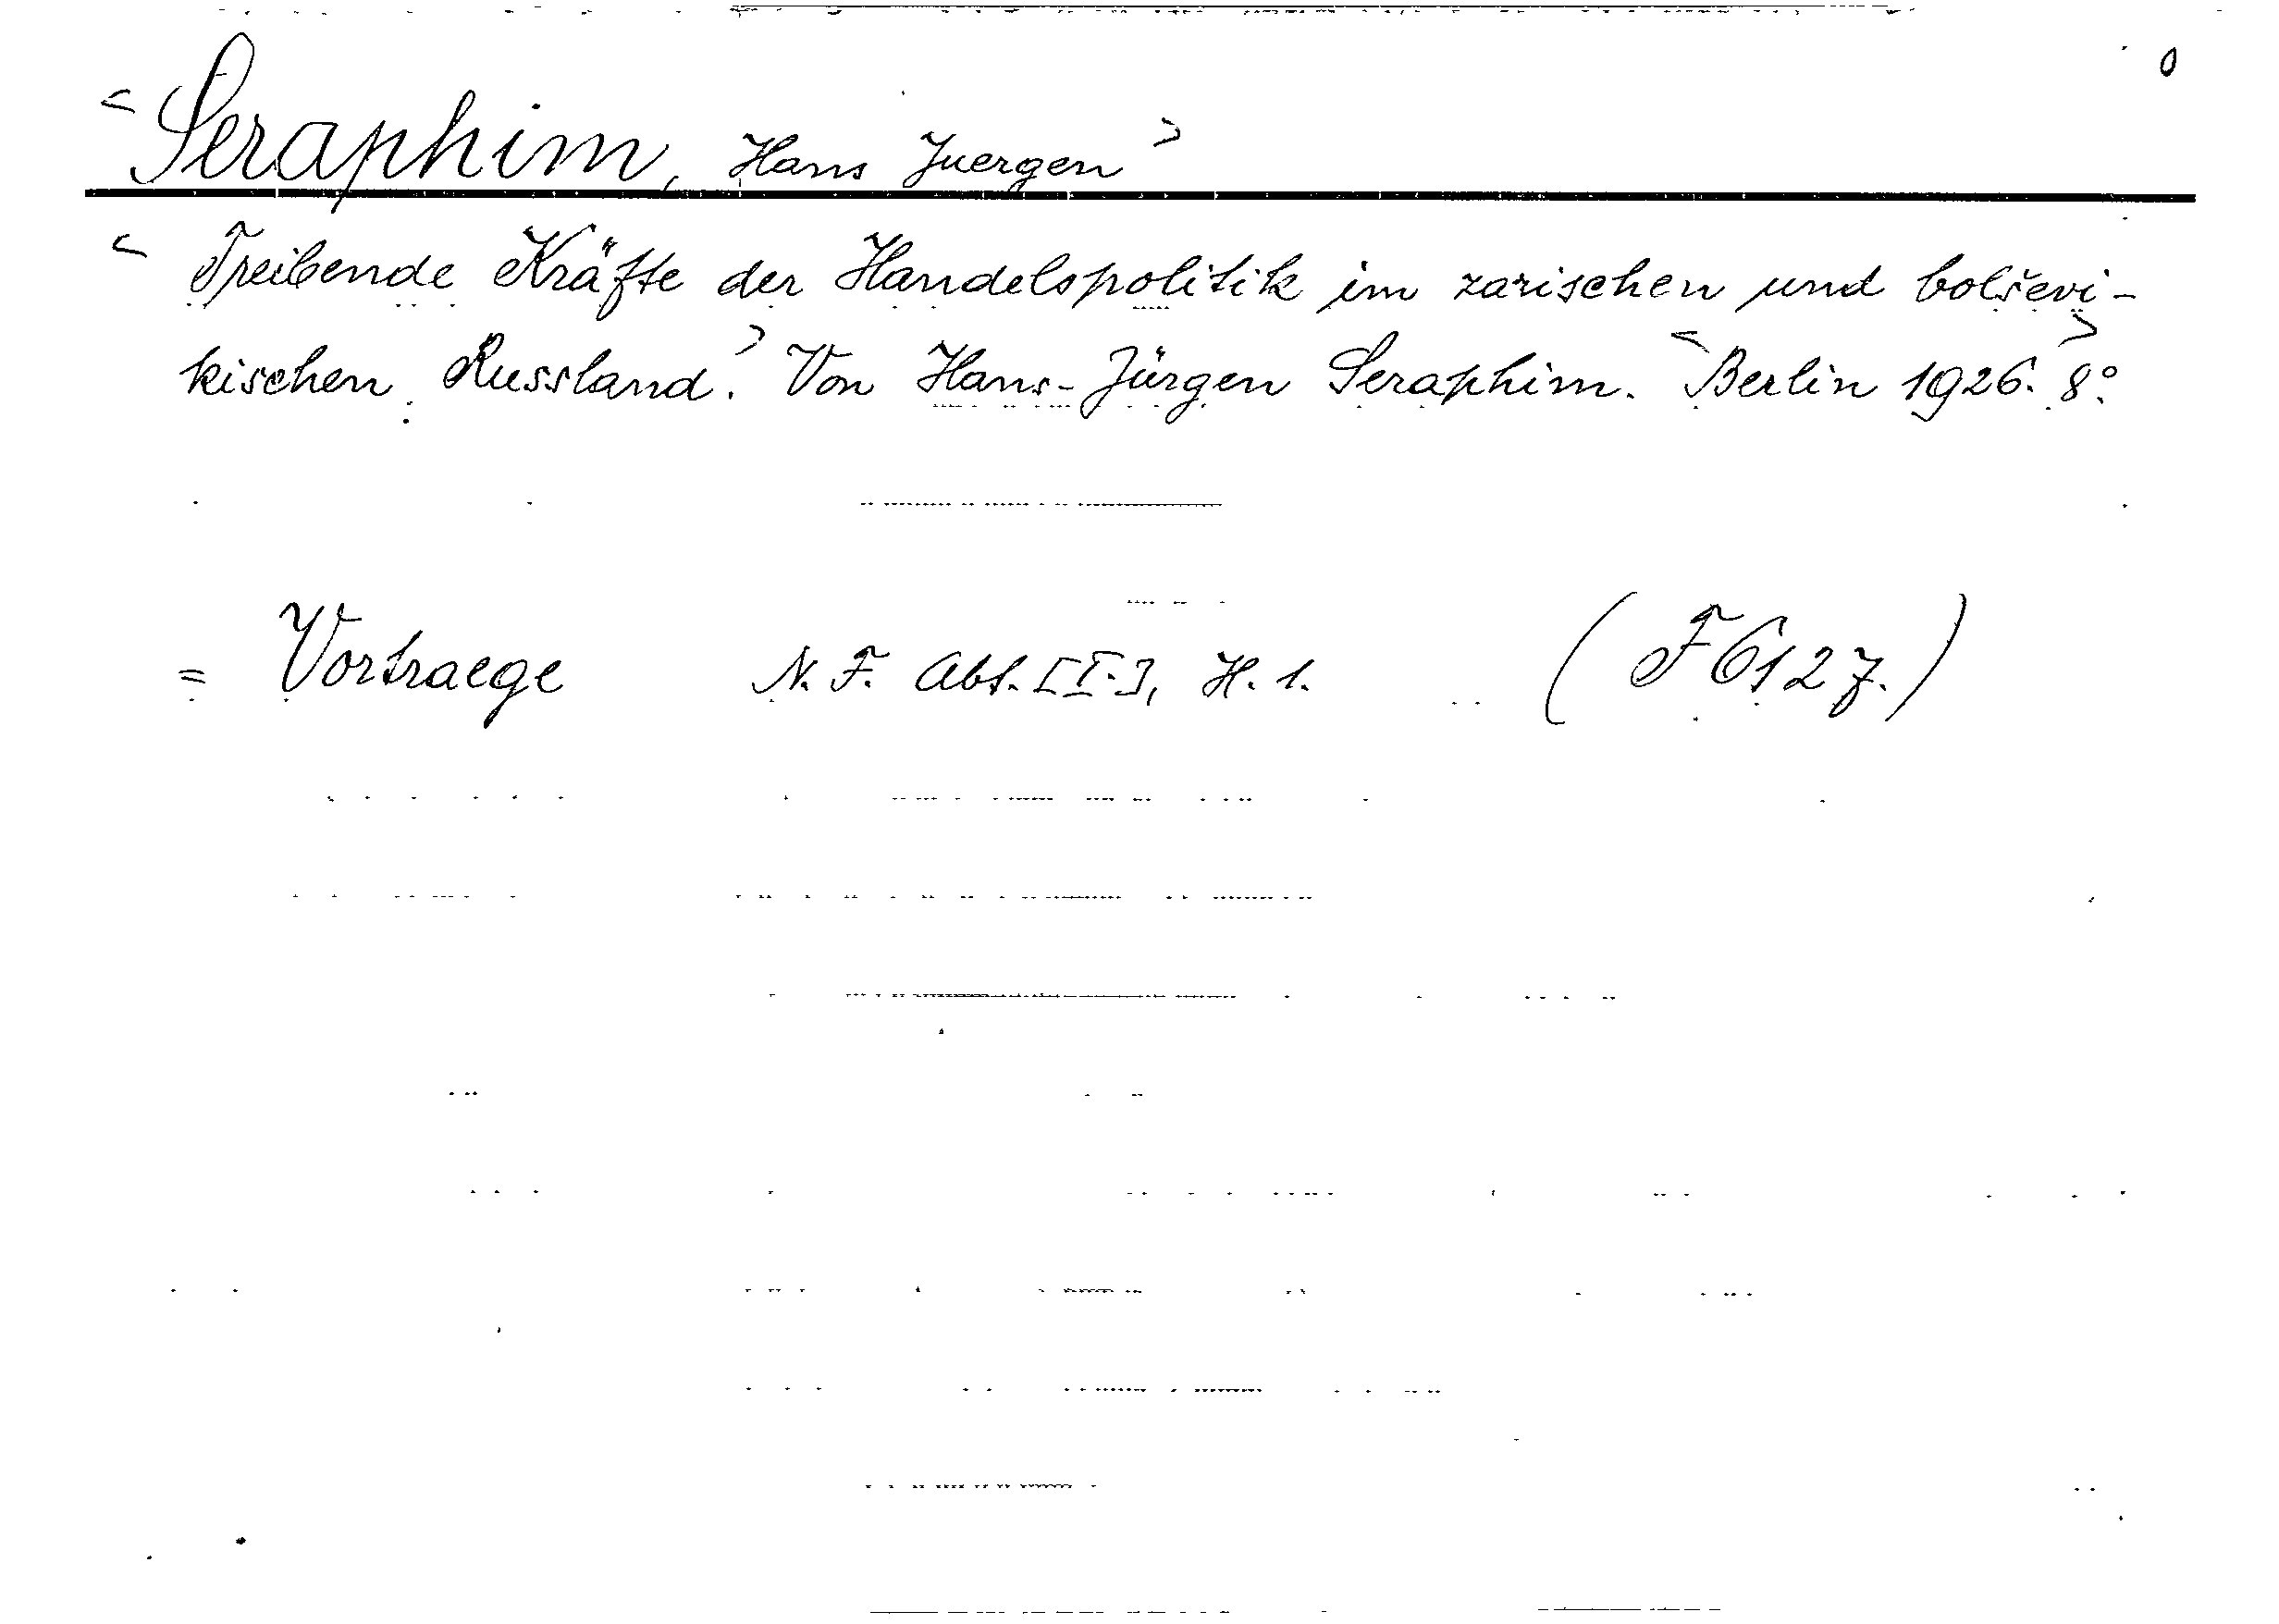 0
< Seraphim, Hans Juergen >
< Treibende Kräfte der Handelspolitik im zarischen und bolševi-
kischen Russland. > Von Hans-Jürgen Seraphim. < Berlin 1926. > 8°.
= Vortraege N. F. Abt. [I.], H. 1. (F6127.)